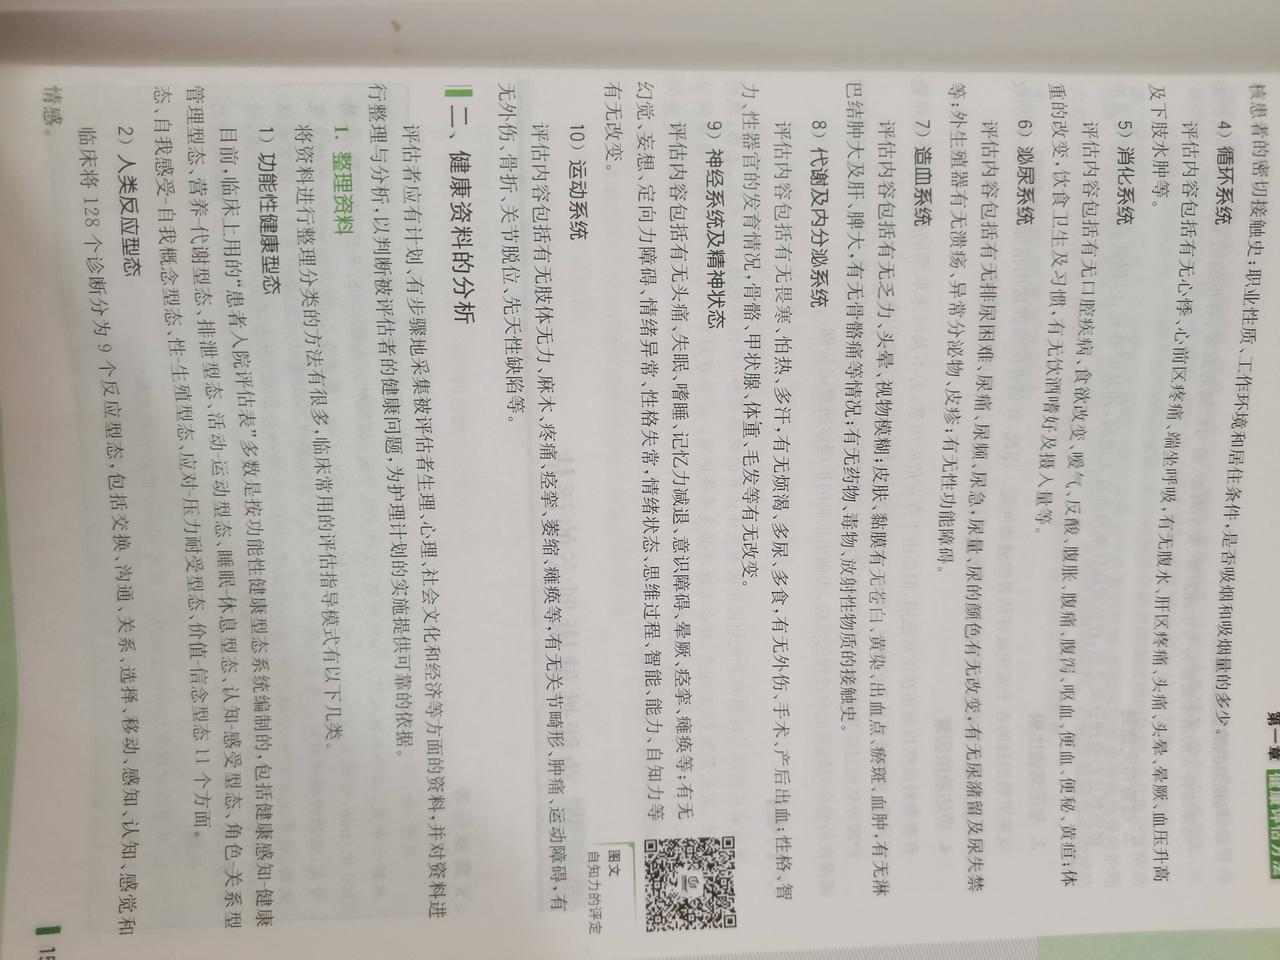 第一章 健康评估方法
核患者的密切接触史;职业性质、工作环境和居住条件,是否吸烟和吸烟量的多少。
4)循环系统
评估内容包括有无心悸、心前区疼痛、端坐呼吸,有无腹水、肝区疼痛、头痛、头晕、晕厥、血压升高
及下肢水肿等。
5)消化系统
评估内容包括有无口腔疾病、食欲改变、嗳气、反酸、腹胀、腹痛、腹泻、呕血、便血、便秘、黄疸;体
重的改变,饮食卫生及习惯,有无饮酒嗜好及摄入量等。
6)泌尿系统
评估内容包括有无排尿困难、尿痛、尿频、尿急,尿量、尿的颜色有无改变,有无尿潴留及尿失禁
等;外生殖器有无溃疡、异常分泌物、皮疹;有无性功能障碍。
7)造血系统
评估内容包括有无乏力、头晕、视物模糊;皮肤、黏膜有无苍白、黄染、出血点、瘀斑、血肿,有无淋
巴结肿大及肝、脾大,有无骨骼痛等情况;有无药物、毒物、放射性物质的接触史。
8)代谢及内分泌系统
评估内容包括有无畏寒、怕热、多汗,有无烦渴、多尿、多食,有无外伤、手术、产后出血;性格、智
力、性器官的发育情况,骨骼、甲状腺、体重、毛发等有无改变。
9)神经系统及精神状态
评估内容包括有无头痛、失眠、嗜睡、记忆力减退、意识障碍、晕厥、痉挛、瘫痪等;有无
幻觉、妄想、定向力障碍、情绪异常、性格失常,情绪状态、思维过程、智能、能力、自知力等
有无改变。
图文
自知力的评定
10)运动系统
评估内容包括有无肢体无力、麻木、疼痛、痉挛、萎缩、瘫痪等,有无关节畸形、肿痛、运动障碍,有
无外伤、骨折、关节脱位、先天性缺陷等。
二、健康资料的分析
评估者应有计划、有步骤地采集被评估者生理、心理、社会文化和经济等方面的资料,并对资料进
行整理与分析,以判断被评估者的健康问题,为护理计划的实施提供可靠的依据。
1. 整理资料
将资料进行整理分类的方法有很多,临床常用的评估指导模式有以下几类。
1)功能性健康型态
目前,临床上用的“患者入院评估表”多数是按功能性健康型态系统编制的,包括健康感知-健康
管理型态、营养-代谢型态、排泄型态、活动-运动型态、睡眠-休息型态、认知-感受型态、角色-关系型
态、自我感受-自我概念型态、性-生殖型态、应对-压力耐受型态、价值-信念型态 11 个方面。
2)人类反应型态
临床将 128 个诊断分为 9 个反应型态,包括交换、沟通、关系、选择、移动、感知、认知、感觉和
情感。